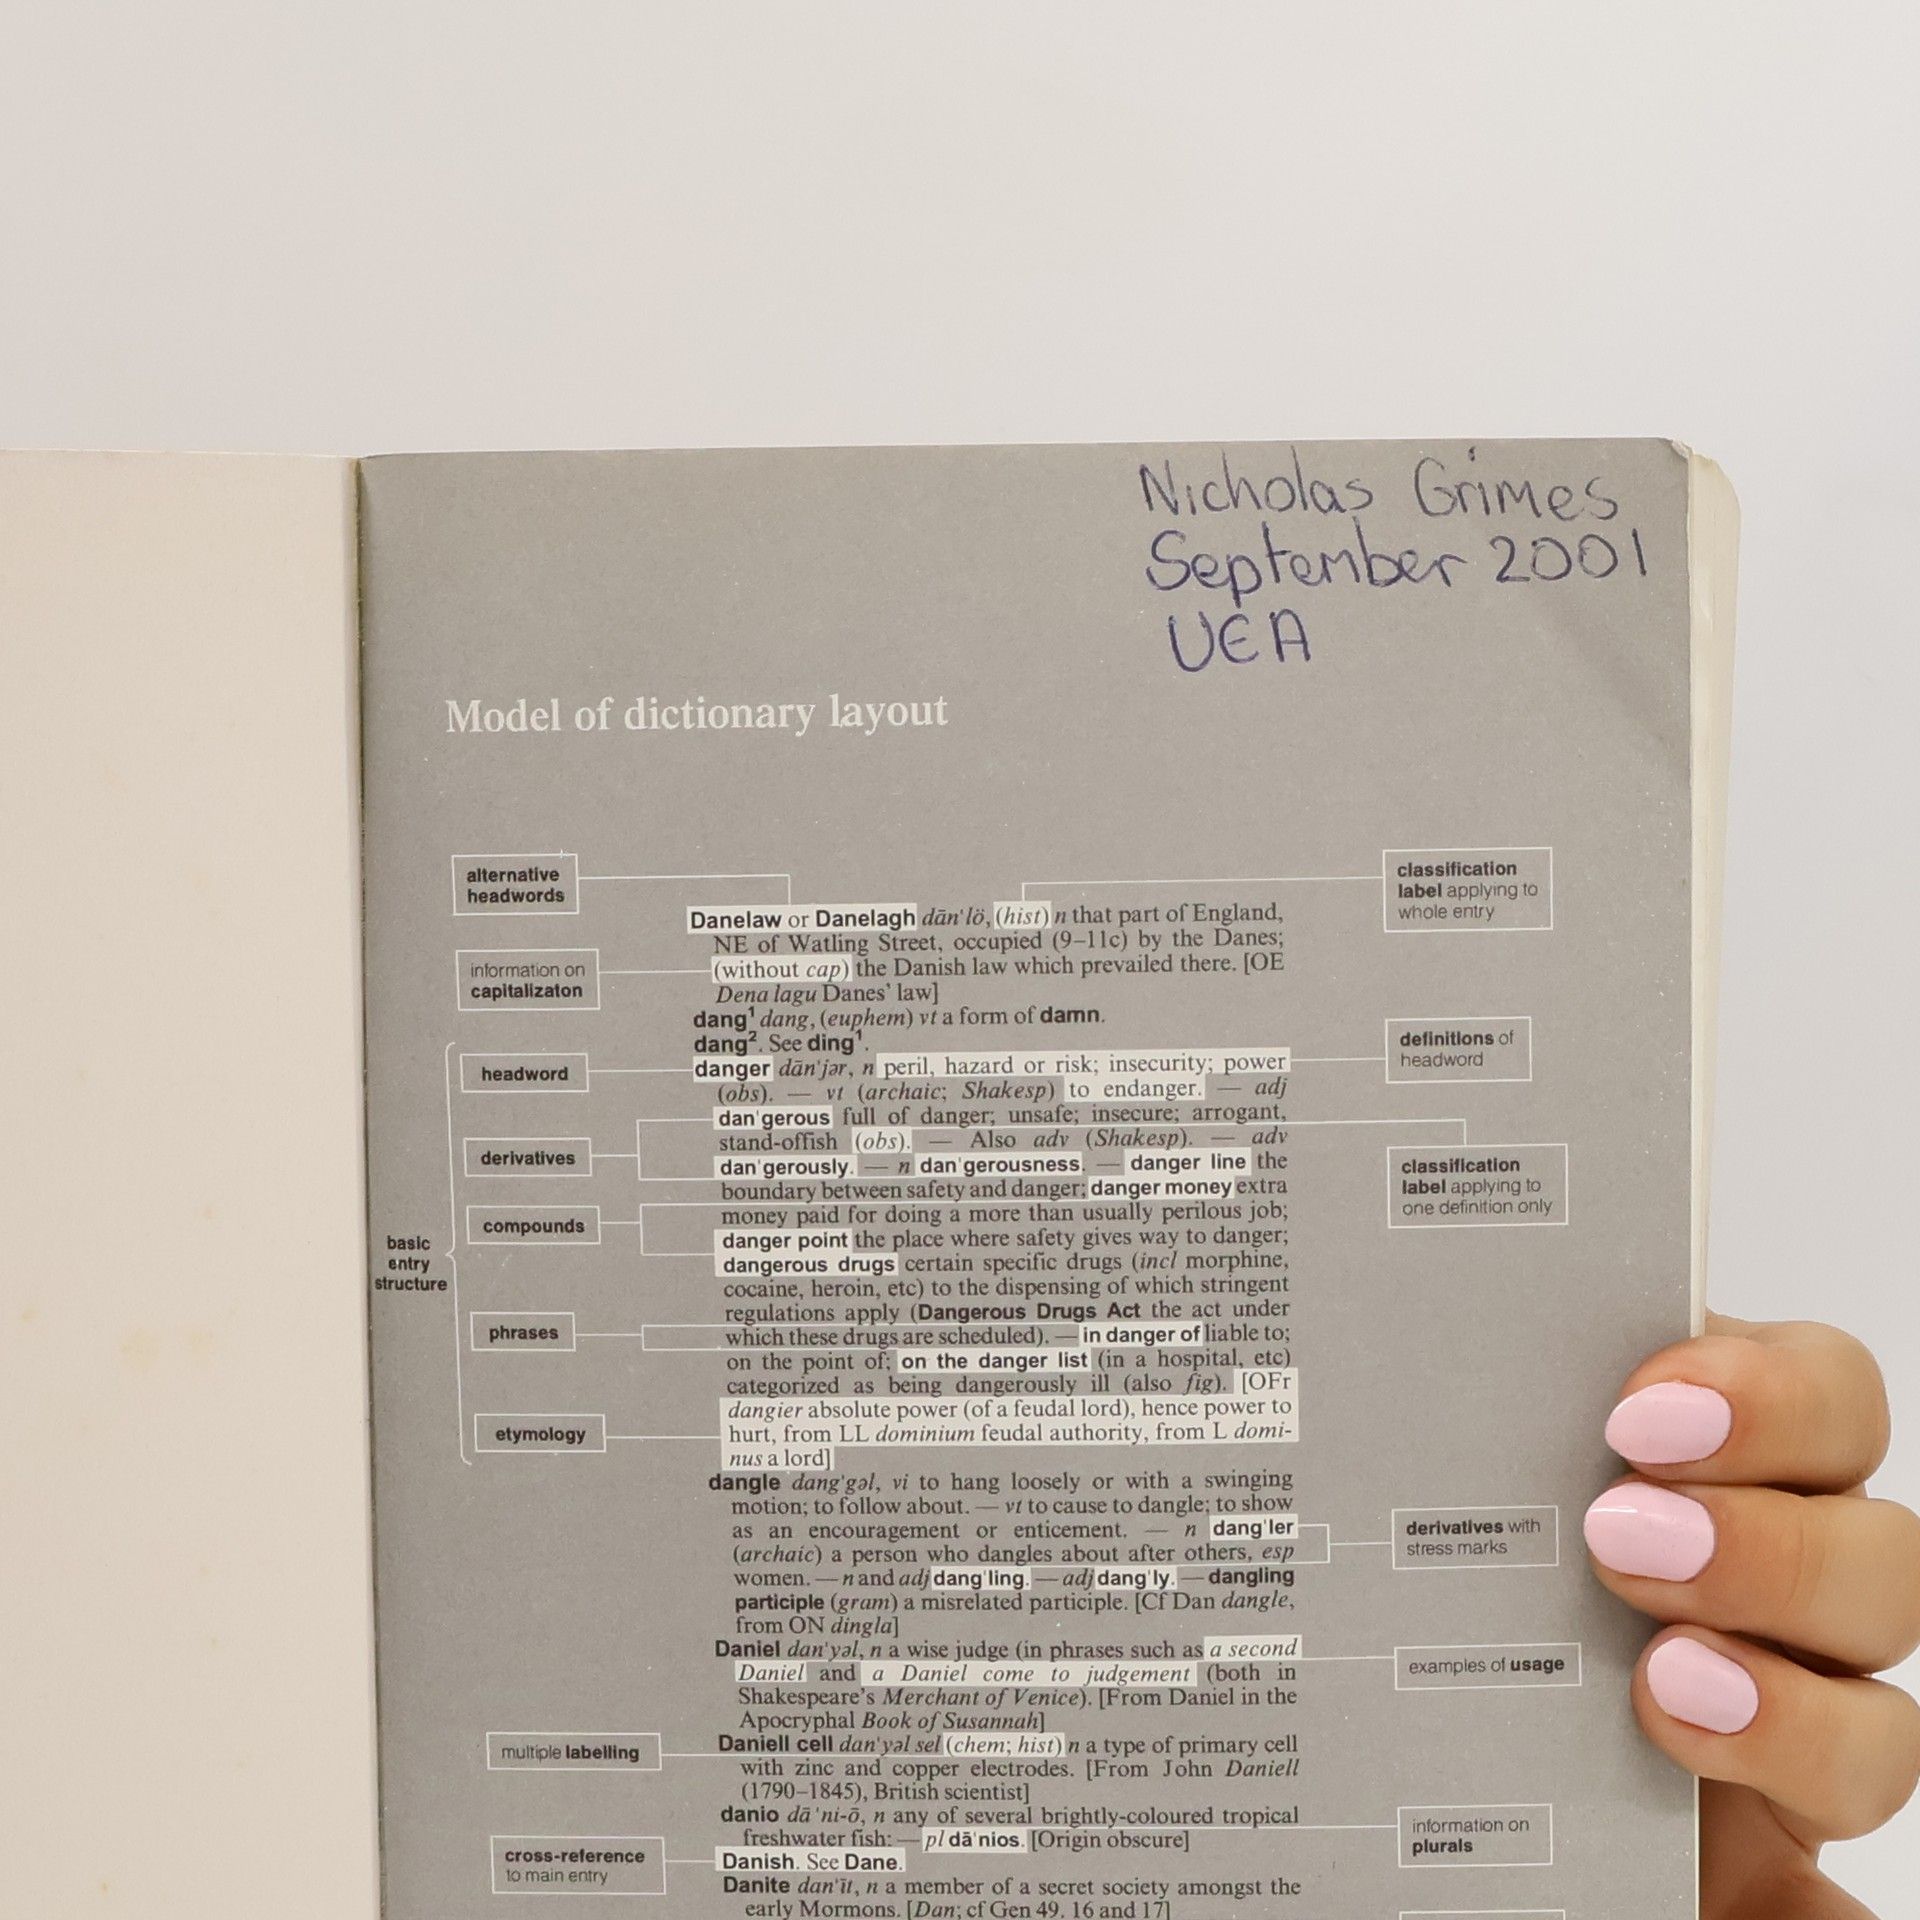 Nicholas Grimes
September 2001
UEA
Model of dictionary layout
alternative
headwords
information on
capitalizaton
basic
entry
structure
headword
derivatives
compounds
phrases
etymology
multiple labelling
cross-reference
to main entry
Danelaw or Danelagh dān'lö, (hist) n that part of England,
NE of Watling Street, occupied (9–11c) by the Danes;
(without cap) the Danish law which prevailed there. [OE
Dena lagu Danes' law]
dang¹ dang, (euphem) vt a form of damn.
dang². See ding¹.
danger dān'jər, n peril, hazard or risk; insecurity; power
(obs). — vt (archaic; Shakesp) to endanger. — adj
dan'gerous full of danger; unsafe; insecure; arrogant,
stand-offish (obs). — Also adv (Shakesp). — adv
dan'gerously. — n dan'gerousness. — danger line the
boundary between safety and danger; danger money extra
money paid for doing a more than usually perilous job;
danger point the place where safety gives way to danger;
dangerous drugs certain specific drugs (incl morphine,
cocaine, heroin, etc) to the dispensing of which stringent
regulations apply (Dangerous Drugs Act the act under
which these drugs are scheduled). — in danger of liable to;
on the point of; on the danger list (in a hospital, etc)
categorized as being dangerously ill (also fig). [OFr
dangier absolute power (of a feudal lord), hence power to
hurt, from LL dominium feudal authority, from L domi-
nus a lord]
dangle dang'gəl, vi to hang loosely or with a swinging
motion; to follow about. — vt to cause to dangle; to show
as an encouragement or enticement. — n dang'ler
(archaic) a person who dangles about after others, esp
women. — n and adj dang'ling. — adj dang'ly. — dangling
participle (gram) a misrelated participle. [Cf Dan dangle,
from ON dingla]
Daniel dan'yəl, n a wise judge (in phrases such as a second
Daniel and a Daniel come to judgement (both in
Shakespeare's Merchant of Venice). [From Daniel in the
Apocryphal Book of Susannah]
Daniell cell dan'yəl sel (chem; hist) n a type of primary cell
with zinc and copper electrodes. [From John Daniell
(1790–1845), British scientist]
danio dā'ni-ō, n any of several brightly-coloured tropical
freshwater fish: — pl dā'nios. [Origin obscure]
Danish. See Dane.
Danite dan'īt, n a member of a secret society amongst the
early Mormons. [Dan; cf Gen 49. 16 and 17]
classification
label applying to
whole entry
definitions of
headword
classification
label applying to
one definition only
derivatives with
stress marks
examples of usage
information on
plurals